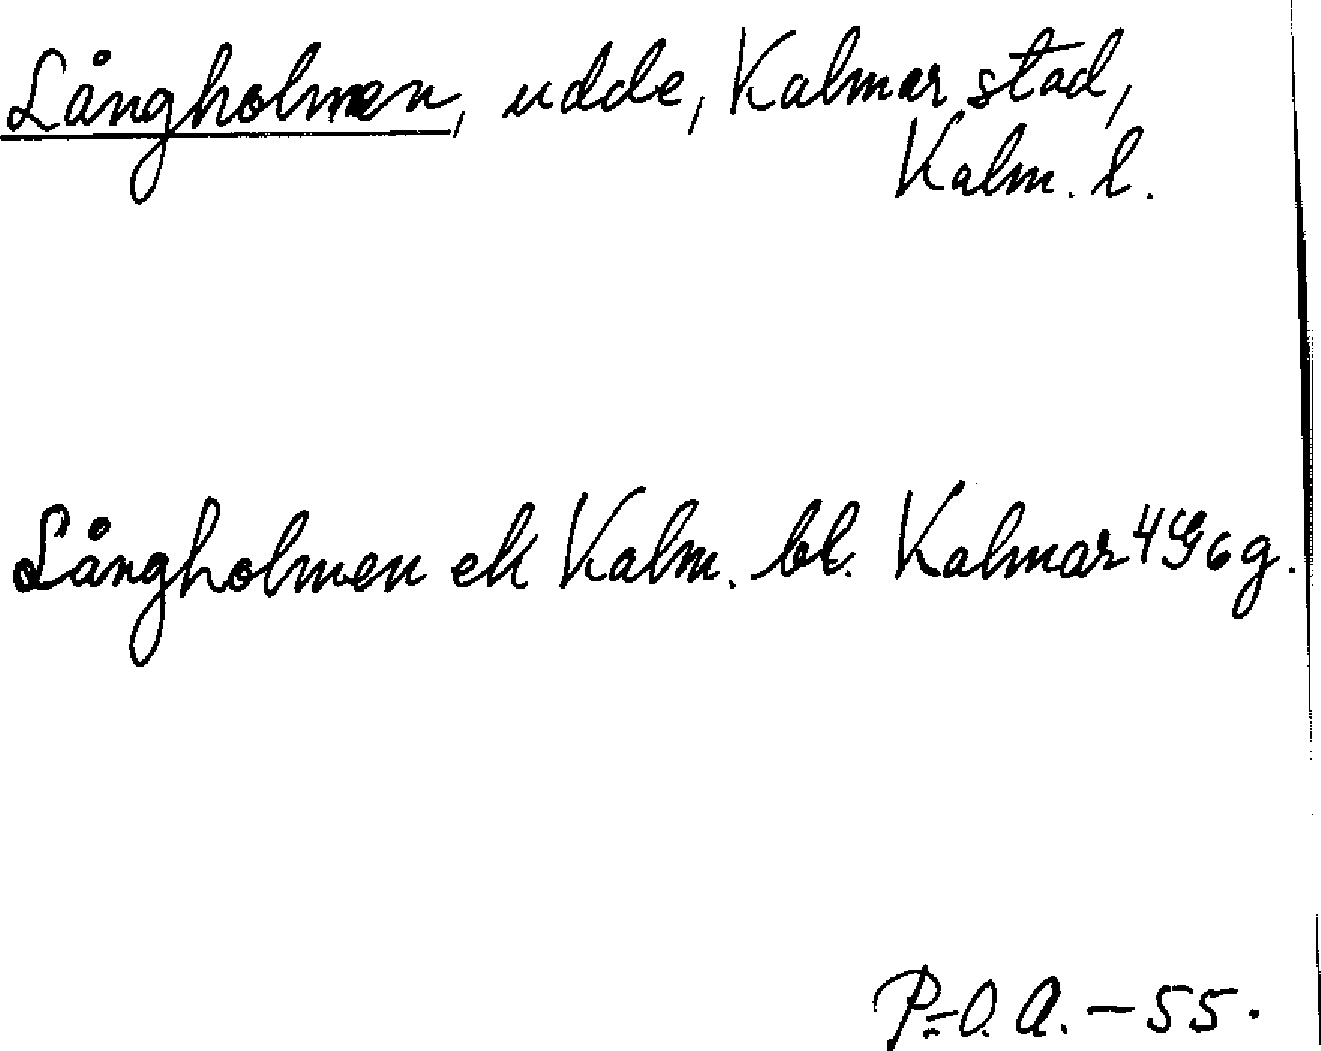 Långholmen, udde, Kalmar stad,
Kalm. l.
Långholmen ek Kalm. bl. Kalmar 4G6g.
P=O. A. – 55.